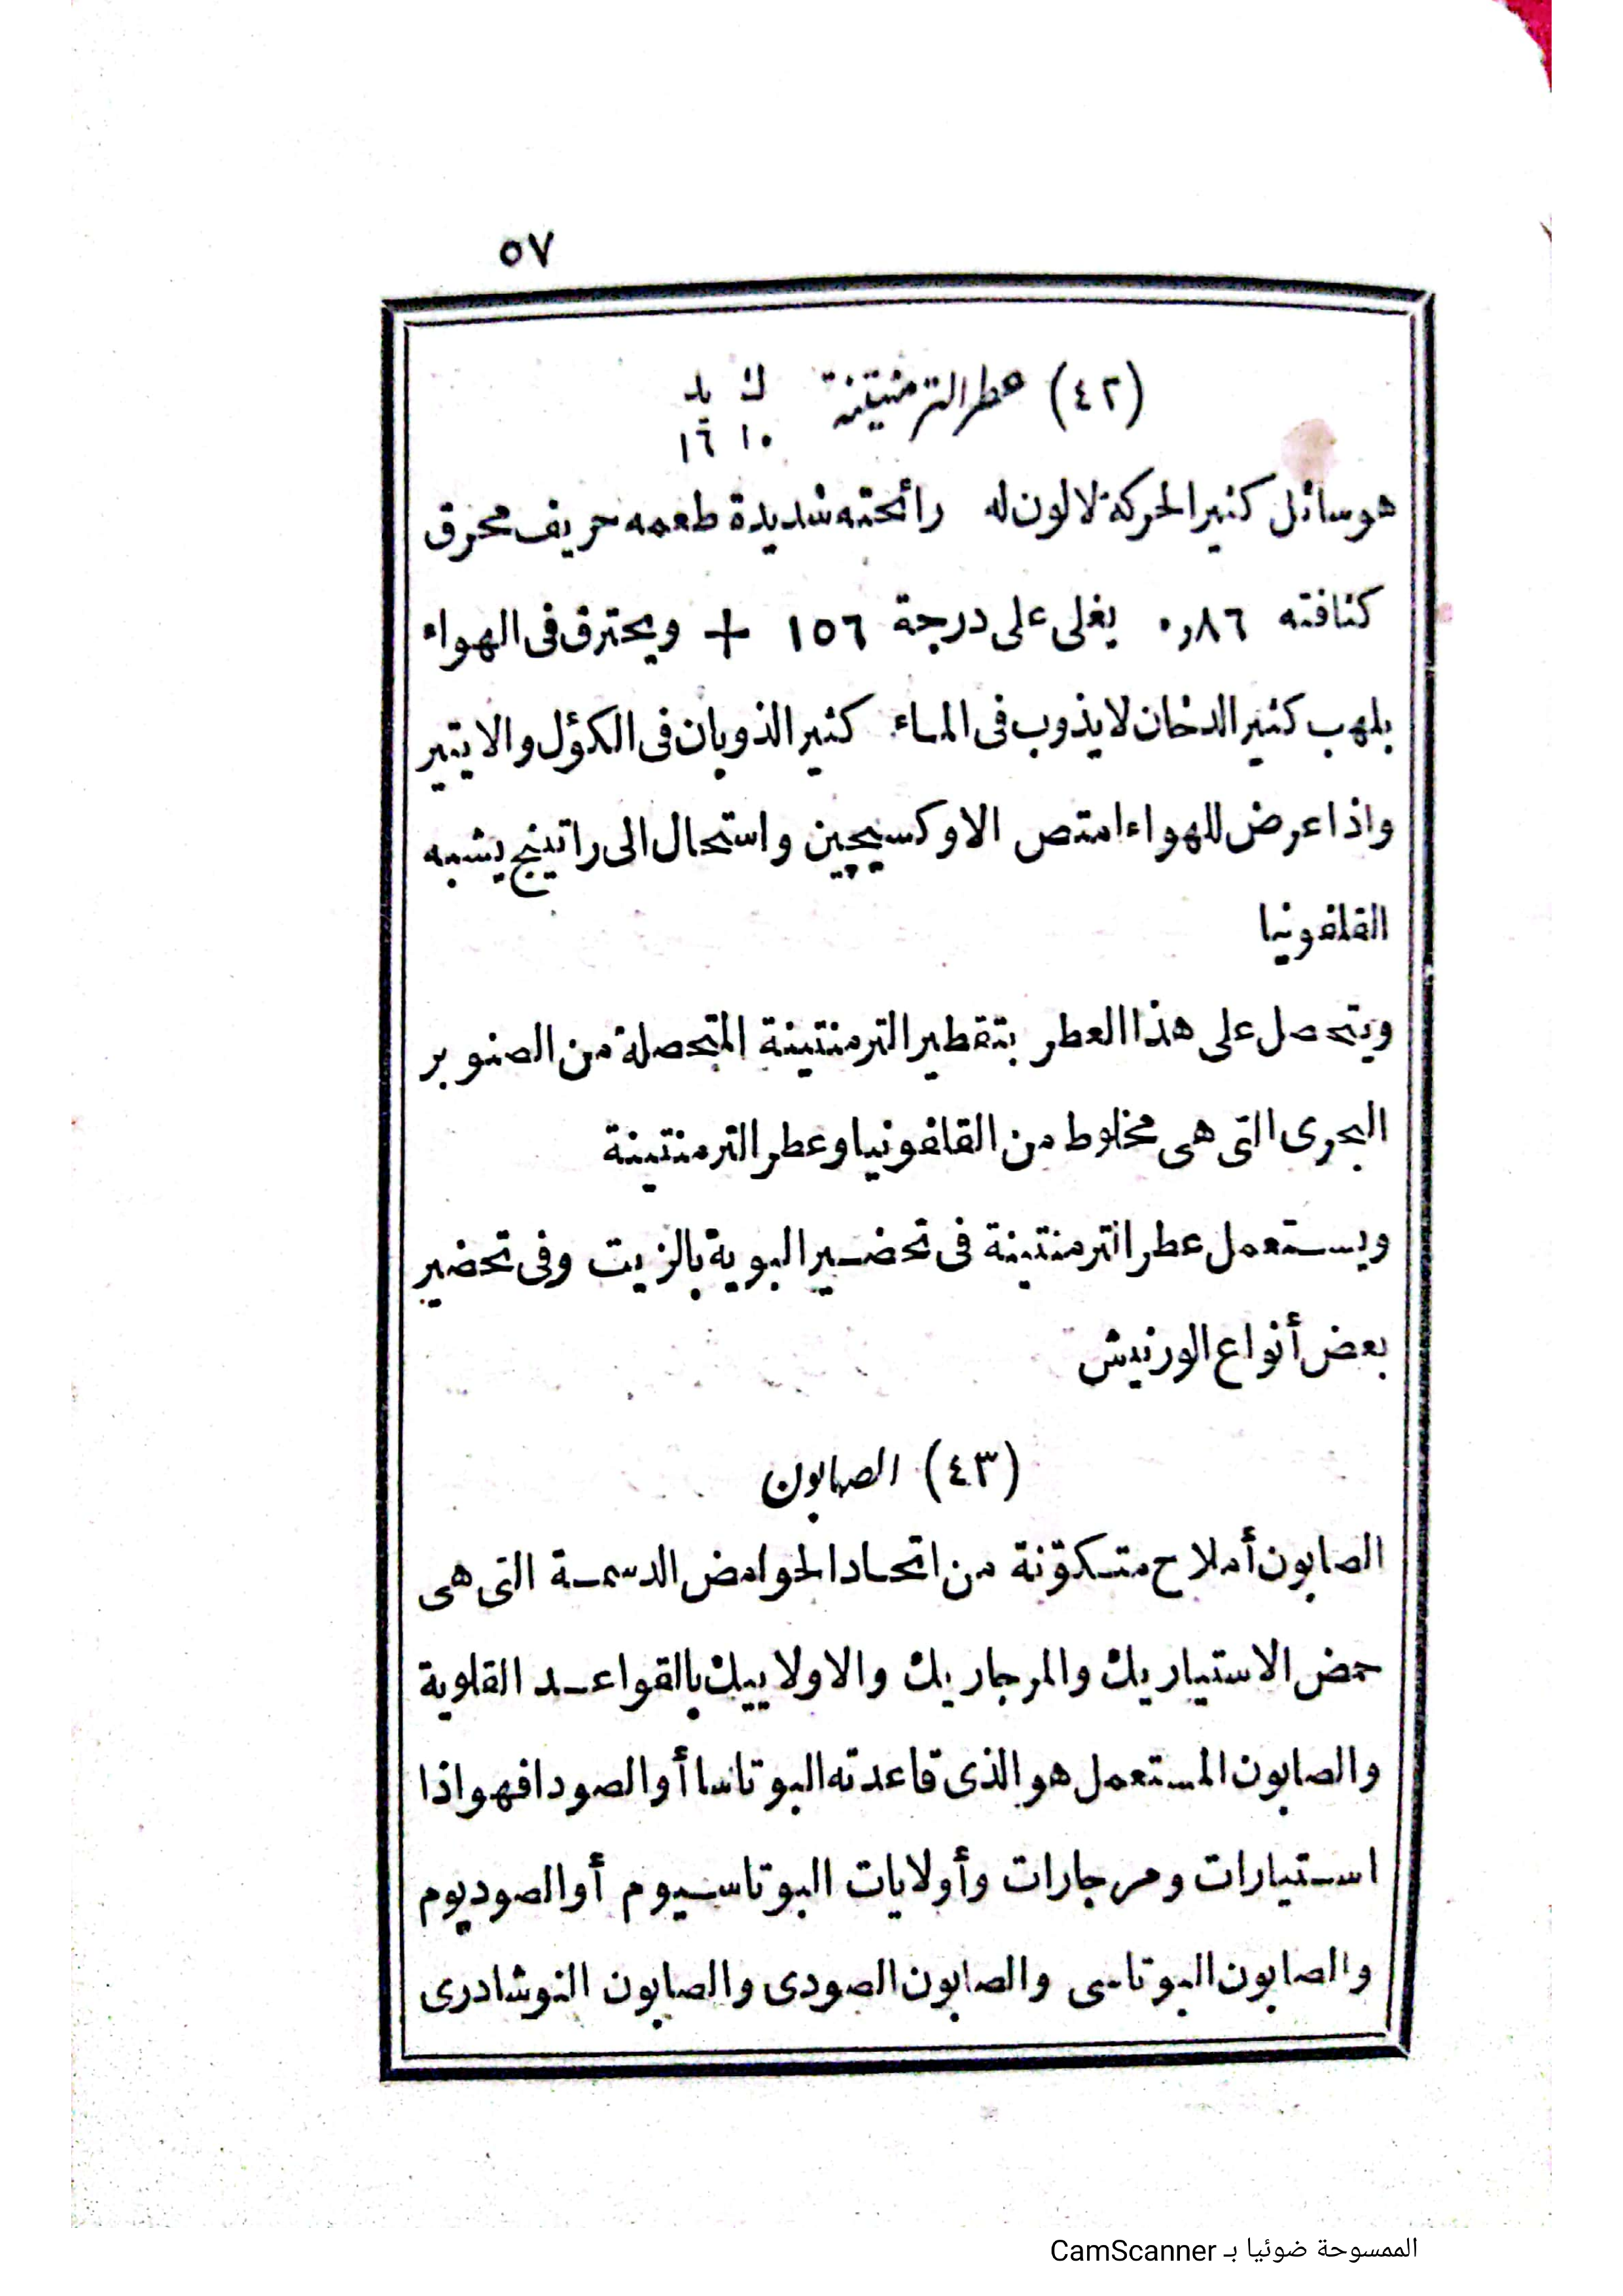 ٥٧
(٤٢) عطر الترمنتينة ك يد
١٠ ١٦
هو سائل كثير الحركة لا لون له رائحته شديدة طعمه حريف محرق
كثافته ٠,٨٦ يغلى على درجة ١٥٦ + ويحترق فى الهواء
بلهب كثير الدخان لا يذوب فى الماء كثير الذوبان فى الكؤل والايتير
واذا عرض للهواء امتص الاوكسيچين واستحال الى راتينج يشبه
القلفونيا
ويتحصل على هذا العطر بتقطير الترمنتينة المتحصلة من الصنوبر
البحرى التى هى مخلوط من القلفونيا وعطر الترمنتينة
ويستعمل عطر الترمنتينة فى تحضير البوية بالزيت وفى تحضير
بعض أنواع الورنيش
(٤٣) الصابون
الصابون أملاح متكوّنة من اتحاد الحوامض الدسمة التى هى
حمض الاستياريك والمرجاريك والاولاييك بالقواعد القلوية
والصابون المستعمل هو الذى قاعدته البوتاسا أو الصودا فهو اذا
استيارات ومرجارات وأولايات البوتاسيوم أو الصوديوم
والصابون البوتاسى والصابون الصودى والصابون النوشادرى
الممسوحة ضوئيا بـ CamScanner